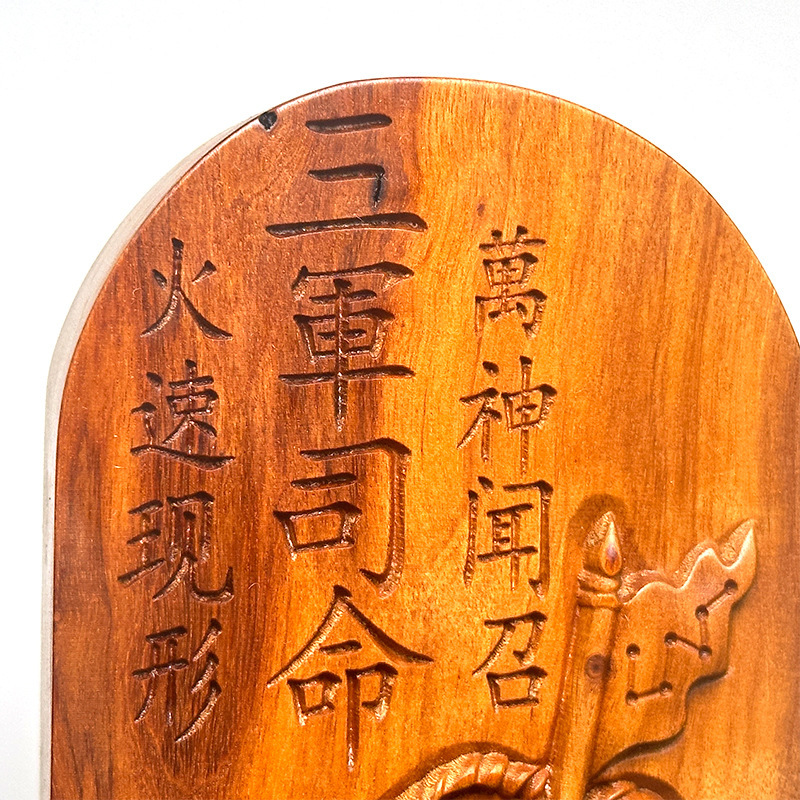 萬神闻召
三軍司命
火速现形